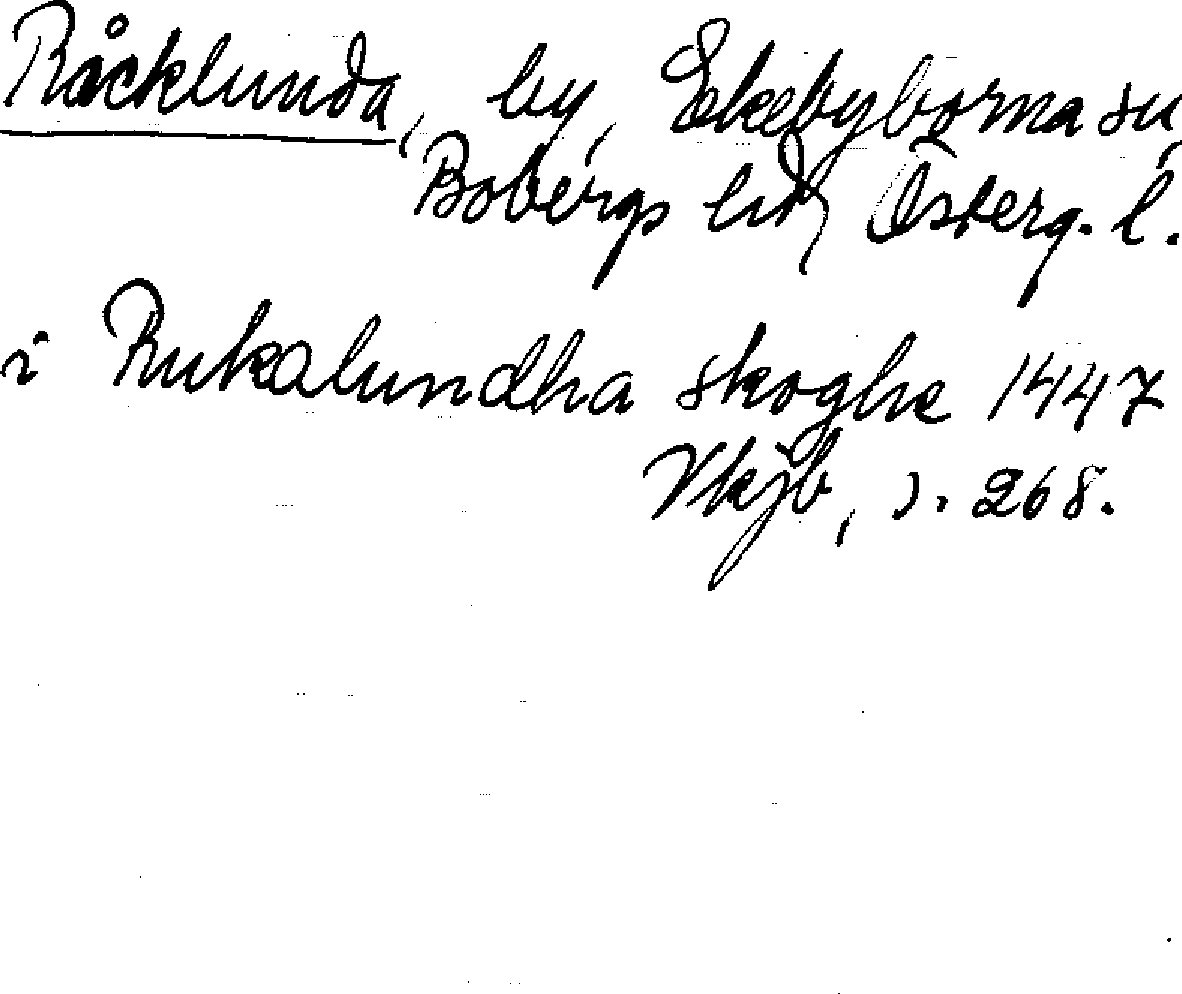 Råcklunda, by, Ekebyborna sn,
Bobergs hd, Österg. l.
i Rukalundha skoghe 1447
Vkjb, s. 268.